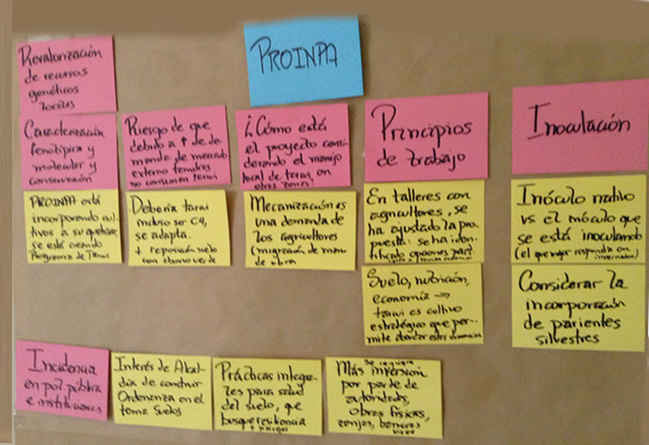 PROINPA
Revalorización
de recursos
genéticos
locales
Caracterización
fenotípica y
molecular y
conservación
PROINPA está
incorporando
a su
se está creando
Programa de Tarwi
Riesgo de que
debido a ↑ de de-
manda de mercado
externo
no consuman tarwi
Debería tarwi
incluso ser C4,
se adapta.
+ reposición suelo
con abono verde
¿Cómo está
el proyecto consi-
derando el manejo
local de tarwi en
otras zonas?
Mecanización es
una demanda de
los agricultores
(migración de mano
de obra
Principios
de trabajo
En talleres con
agricultores, se
ha ajustado la pro-
puesta: se ha iden-
tificado opciones
Suelo, nutrición,
economía →
tarwi es cultivo
estratégico que per-
mite abordar estas dimensiones
Inoculación
Inóculo nativo
vs el inóculo que
se está inoculando
(el que mejor respondía en
invernadero)
Considerar la
incorporación
de parientes
silvestres
Incidencia
en pol. pública
e instituciones
Interés de Alcal-
día de construir
Ordenanza en el
tema Suelos
Prácticas integra-
les para salud
del suelo, que
busque resiliencia
Se requiere
Más inversión
por parte de
autoridades,
obras físicas,
zanjas, barreras
vivas